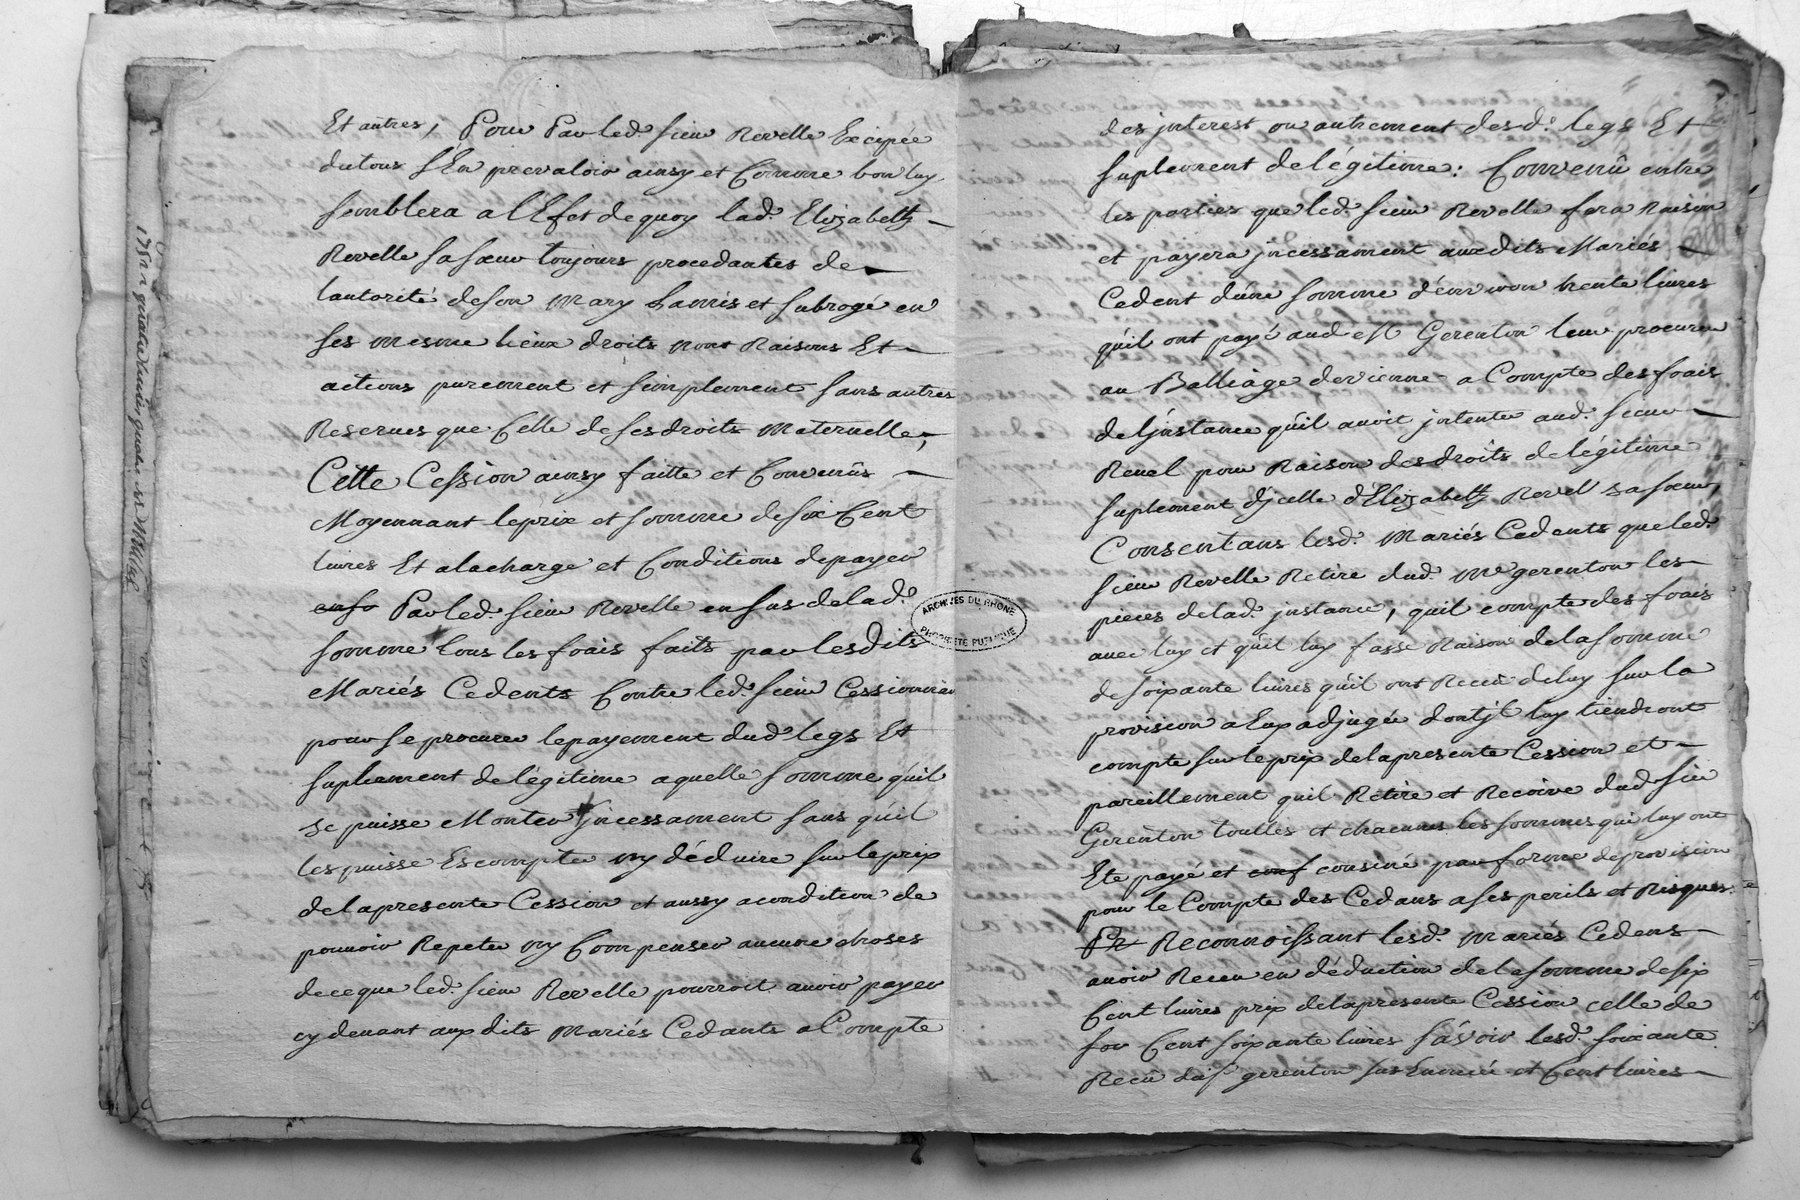 Et autres, Pour Par led. sieur Revelle Excipée
dutous s'En prevaloir ainsy et Comme bon luy
semblera a l'Efet de quoy lad. Elizabeth
Revelle sa sœur toujours procedantes de
lautorité de son mary Lamis et subrogé en
ses mesme lieux droits nont Raisons Et
actions purement et simplement sans autres
Reserves que Celle de ses droits maternelles,
Cette Cession ainsy faitte et Convenûs
Moyennant le prix et somme de six Cent
livres Et a la charge et Conditions de payer
Par led. sieur Revelle en sus de lad.
somme tous les frais faits par lesdits
Mariés Cedents Contre led. sieur Cessionnaire
pour se procurer le payement dud. legs Et
suplement de légitime a quelle somme qu'il
se puisse Monter jncessament sans qu'il
les puisse Escompter ny déduire sur le prix
de la presente Cession et aussy a condition de
pouvoir Repeter ny Compenser aucune choses
de ce que led. sieur Revelle pourroit avoir payer
cy devant aux dits Mariés Cedants a Compte
des jnterest ou autrement desd. legs Et
suplement de légitime : Convenû entre
les parties que led. sieur Revelle fera Raison
et payera jncessament auxdits Mariés
Cedent dune somme d'environ trente livres
qu'il ont payé aud. Gerenton leur procureur
au Balliage de vienne a Compte des frais
de l'jnstance qu'il avoit jntenté aud. sieur
Revel pour Raison des droits de légitime
suplement djcelle d'Elizabeth Revel sa sœur,
Consentans lesd. Mariés Cedents que led.
sieur Revelle Retire dud. me gerenton les
pieces de lad. jnstance, quil compte des frais
avec luy et qu'il luy fasse Raison de la somme
de soixante livres qu'il ont Receû de luy sur la
provision a Eux adjugée dont jl luy tiendront
compte sur le prix de la presente Cession et
pareillement quil Retire et Recoive dud. sieur
Gerenton touttes et chacunes les sommes qui luy ont
Ete payé et consiné par forme de provision
pour le Compte des Cedans a ses perils et Risques.
Reconnoissant lesd. Mariés Cedens
avoir Receu en déduction de la somme de six
Cent livres prix de la presente Cession celle de
Cent soixante livres sçavoir lesd. soixante
Receû gerenton sus Enoncée et Cent livres
ARCHIVES DU RHÔNE
PROPRIÉTÉ PUBLIQUE